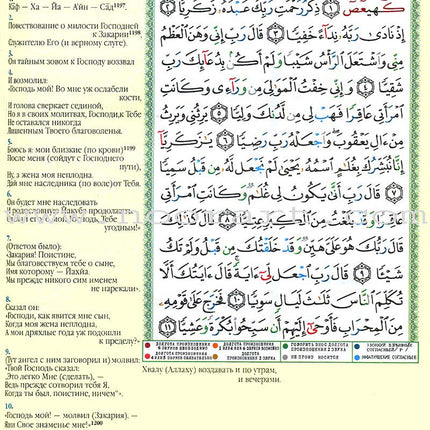 Каф – Ха – Йа – А'йн – Сад¹¹⁹⁷.
2.
Повествование о милости Господней
к Закарии¹¹⁹⁸,
Служителю Его (и верному слуге).
3.
Он тайным зовом к Господу воззвал
4.
И возмолил:
«Господь мой! Во мне уж ослабели
кости,
И голова сверкает сединой,
Но я в своих молитвах, Господи, к Тебе
Не оставался никогда
Лишенным Твоего благоволенья.
5.
Боюсь я: мои близкие (по крови)¹¹⁹⁹
После меня (сойдут с Господнего
пути),
Ну, а жена моя неплодна.
Дай мне наследника (по воле) от Тебя.
6.
Он будет мне наследовать
И родословную Йакуба продолжит.
угодным!»
7.
(Ответом было):
«Закария! Поистине,
Мы благовествуем тебе о сыне,
Имя которому — Йаххйа.
Мы прежде никого сим именем
не нарекали».
8.
Сказал он:
«Господи, как явится мне сын,
Когда моя жена неплодна,
А мои дряхлые года уж подошли
к пределу?»
9.
(Тут ангел с ним заговорил и) молвил:
«Твой Господь сказал:
Это легко Мне (сделать), —
Ведь прежде сотворил тебя Я,
Когда ты был, поистине, ничем"».
10.
«Господь мой! — молвил (Закария). —
Яви Свое знаменье мне!»¹²⁰⁰
كٓهيعٓصٓ ١ ذِكْرُ رَحْمَتِ رَبِّكَ عَبْدَهُۥ زَكَرِيَّآ ٢
إِذْ نَادَىٰ رَبَّهُۥ نِدَآءً خَفِيًّا ٣ قَالَ رَبِّ إِنِّي وَهَنَ ٱلْعَظْمُ
مِنِّي وَٱشْتَعَلَ ٱلرَّأْسُ شَيْبًا وَلَمْ أَكُنۢ بِدُعَآئِكَ رَبِّ
شَقِيًّا ٤ وَإِنِّي خِفْتُ ٱلْمَوَٰلِيَ مِن وَرَآءِي وَكَانَتِ
ٱمْرَأَتِي عَاقِرًا فَهَبْ لِي مِن لَّدُنكَ وَلِيًّا ٥ يَرِثُنِي وَيَرِثُ
مِنْ ءَالِ يَعْقُوبَ وَٱجْعَلْهُ رَبِّ رَضِيًّا ٦ يَٰزَكَرِيَّآ
إِنَّا نُبَشِّرُكَ بِغُلَٰمٍ ٱسْمُهُۥ يَحْيَىٰ لَمْ نَجْعَل لَّهُۥ مِن قَبْلُ سَمِيًّا
٧ قَالَ رَبِّ أَنَّىٰ يَكُونُ لِي غُلَٰمٌ وَكَانَتِ ٱمْرَأَتِي
عَاقِرًا وَقَدْ بَلَغْتُ مِنَ ٱلْكِبَرِ عِتِيًّا ٨ قَالَ كَذَٰلِكَ
قَالَ رَبُّكَ هُوَ عَلَيَّ هَيِّنٌ وَقَدْ خَلَقْتُكَ مِن قَبْلُ وَلَمْ تَكُ
شَيْـًٔا ٩ قَالَ رَبِّ ٱجْعَل لِّيٓ ءَايَةً قَالَ ءَايَتُكَ أَلَّا
تُكَلِّمَ ٱلنَّاسَ ثَلَٰثَ لَيَالٍ سَوِيًّا ١٠ فَخَرَجَ عَلَىٰ قَوْمِهِۦ
مِنَ ٱلْمِحْرَابِ فَأَوْحَىٰٓ إِلَيْهِمْ أَن سَبِّحُوا۟ بُكْرَةً وَعَشِيًّا ١١
Хвалу (Аллаху) воздавать и по утрам,
и вечерами.